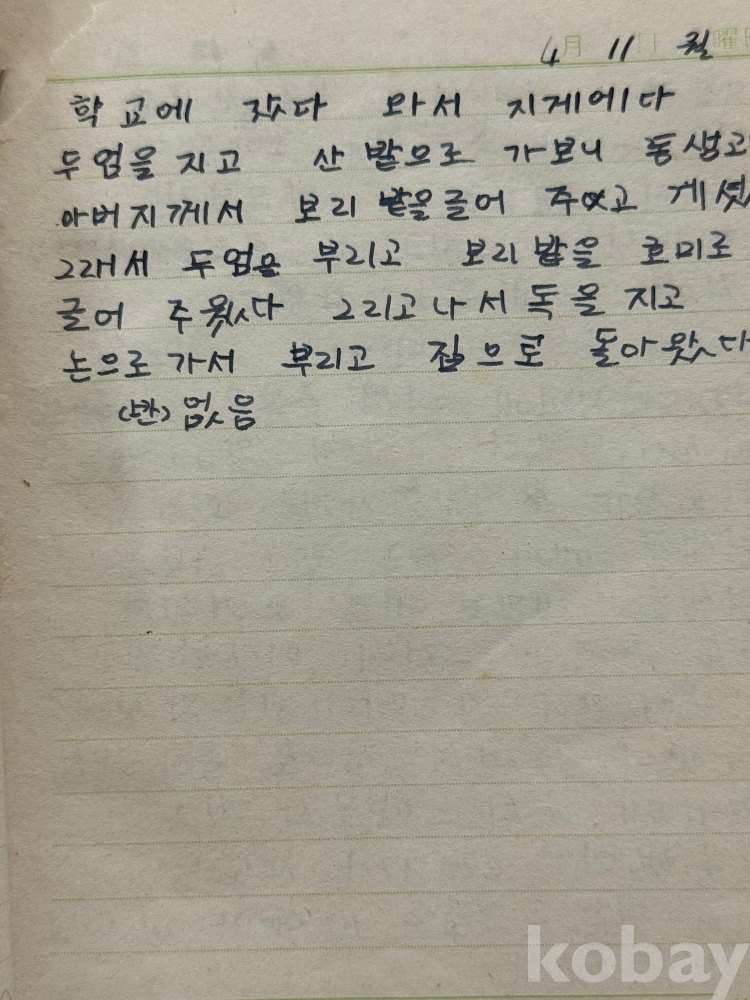 4月 11日 월 曜日
학교에 갔다 와서 지게에다
두엄을 지고 산 밭으로 가보니 동생과
아버지께서 보리 밭을글어 주고 게셨
그래서 두엄을 부리고 보리 밭을 호미로
글어 주웠다 그리고나서 독을 지고
논으로 가서 부리고 집으로 돌아왔다
(반) 없음
kobay